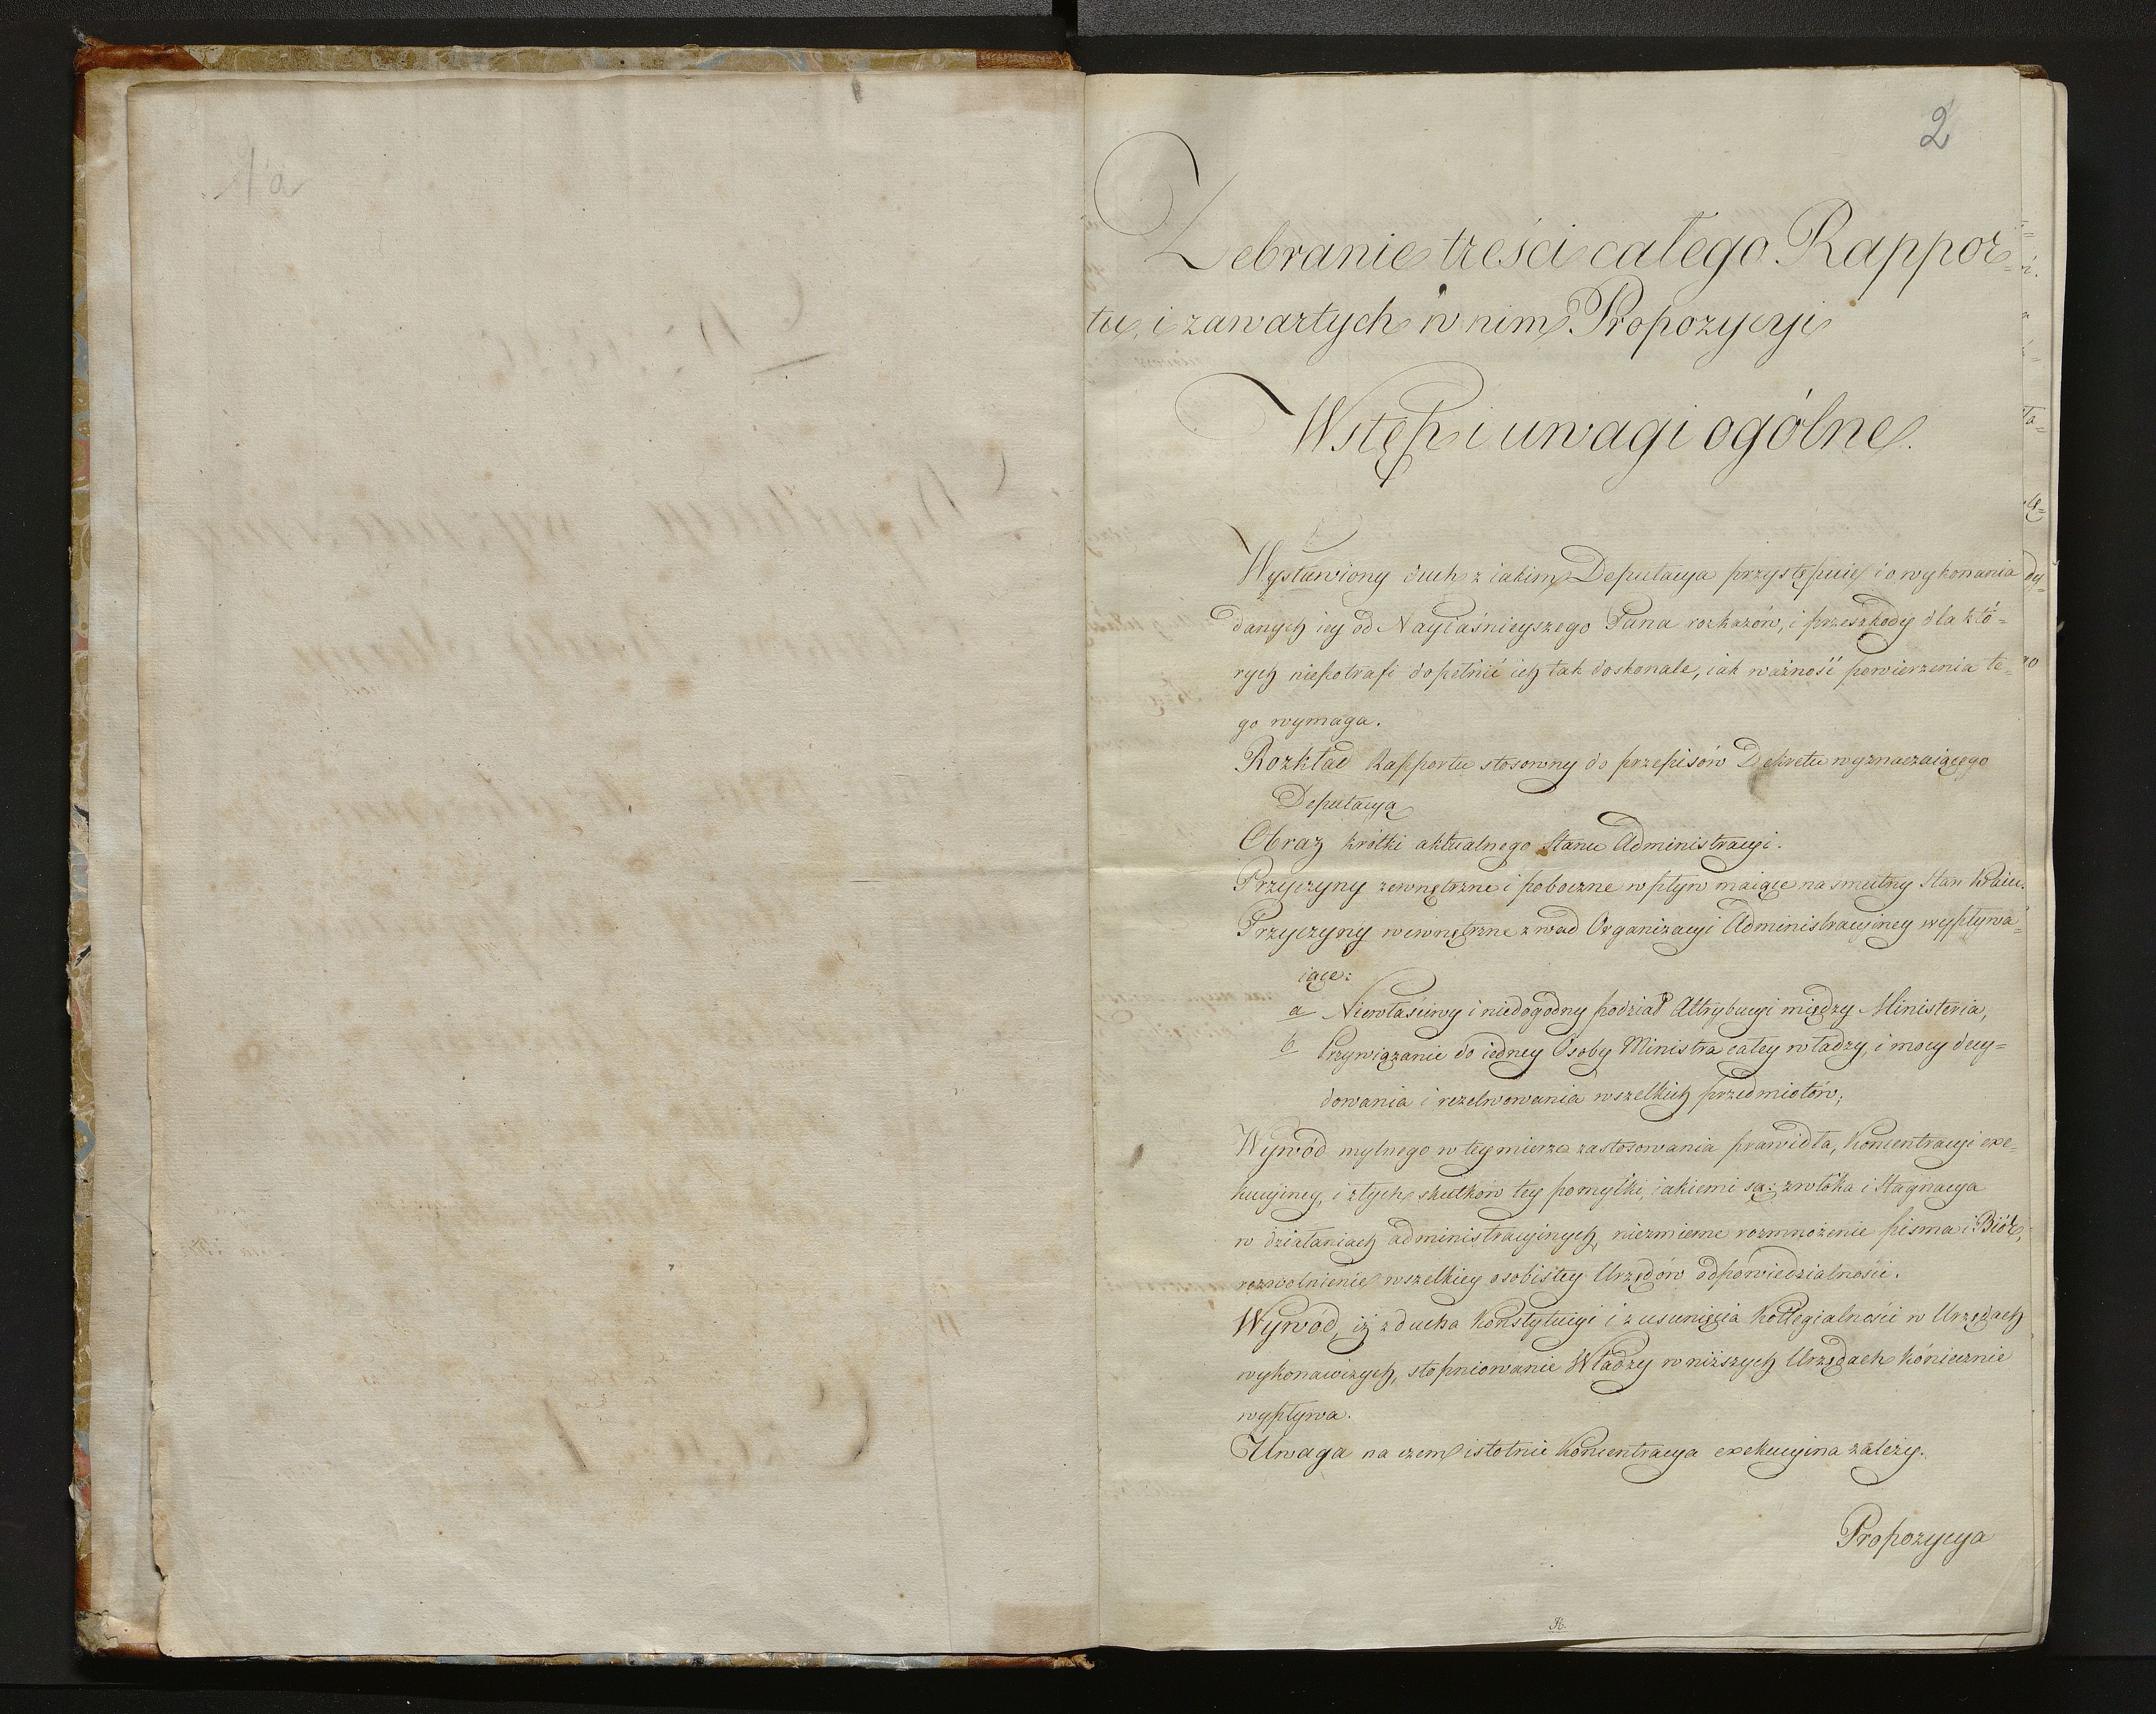 1a
2
Zebranie treści całego Rappor-
tu, i zawartych w nim Propozycyi
Wstęp i uwagi ogólne.
Wystawiony duch z iakim Deputacya przystępuie do wykonania
danych iey od Nayiaśnieyszego Pana rozkazów, i przeszkody dla któ=
rych niepotrafi dopełnić ich tak doskonale, iak ważność powierzenia te=
go wymaga.
Rozkład Rapportu stosowny do przepisów Dekretu wyznaczaiącego
Deputacyą
Obraz krótki aktualnego Stanu Administracyi.
Przyczyny zewnętrzne i poboczne wpływ maiące na smutny Stan Kraiu.
Przyczyny wewnętrzne z wad Organizacyi Administracyiney wypływa=
iące:
a Niewłaściwy i niedogodny podział Attrybucyi między Ministeria,
b Przywiązanie do iedney Osoby Ministra całey władzy, i mocy decy=
dowania i rezolwowania wszelkich przedmiotów;
Wywód mylnego w tey mierze zastosowania prawidła, Koncentracyi exe-
kucyiney, i złych skutków tey pomyłki, iakiemi są: zwłoka i Stagnacya
w działaniach administracyinych, niezmierne rozmnożenie pisma i Biór,
rozwolnienie wszelkiey osobistey Urzędów odpowiedzialności.
Wywód, iż z ducha Konstytucyi i z usunięcia Kollegialności w Urzędach
wykonawczych, stopniowanie Władzy w niższych Urzędach koniecznie
wypływa.
Uwaga na czem istotnie Koncentracya exekucyina zależy.
Propozycya